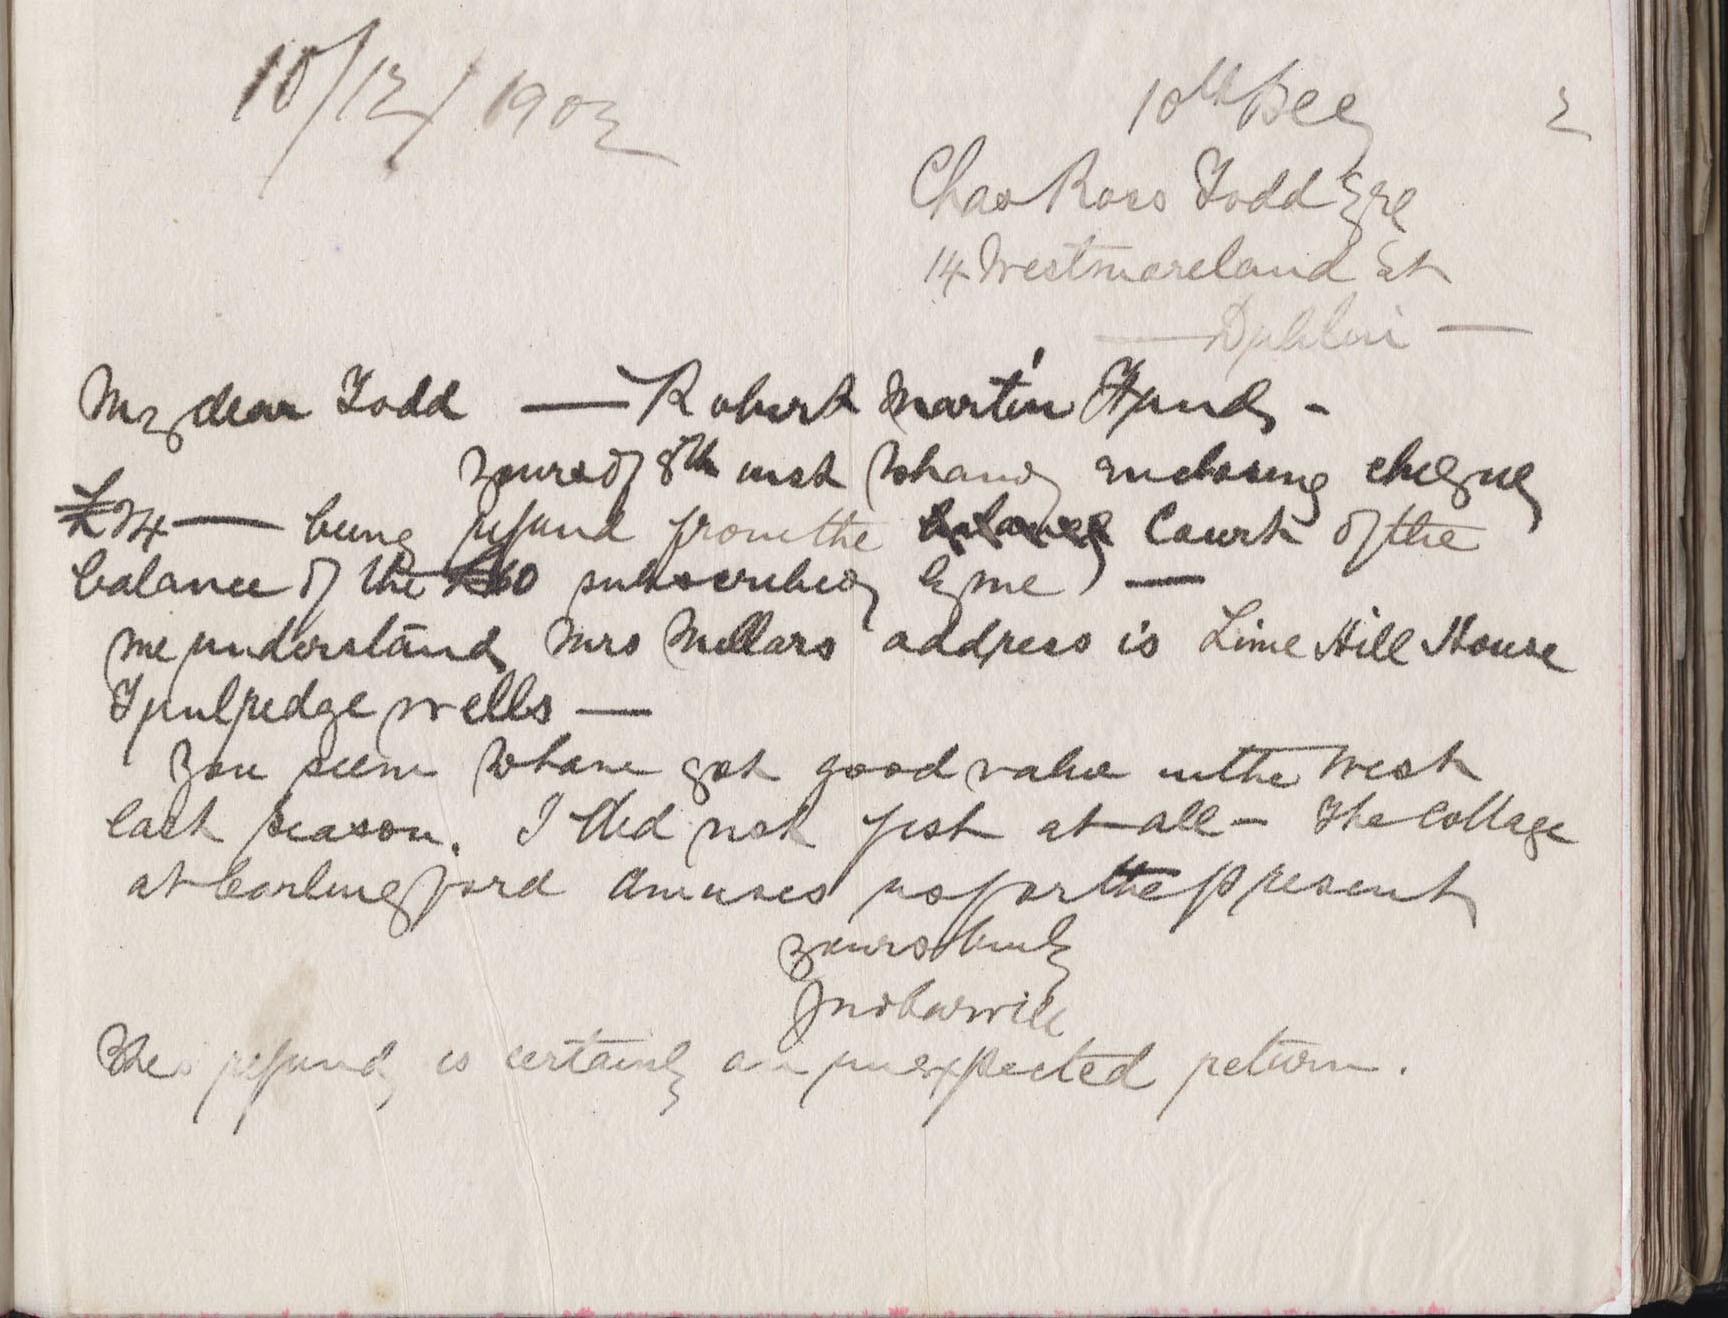 10/12/1902
10th Dec 2
Chas Ross Todd Esq
14 Westmoreland St
— Dublin —
My dear Todd — Robert Martin Fund -
Yours of 8th inst to hand enclosing cheque
£24 — being refund from the balance Court of the
balance of the £60 subscribed by me —
We understand Mrs Millars address is Lime Hill House
Tunbridge Wells —
You seem to have got good value in the West
last season. I did not fish at all - The Cottage
at Carlingford amuses us for the present
Yours truly
Jno Barwill
The refund is certainly an unexpected return.